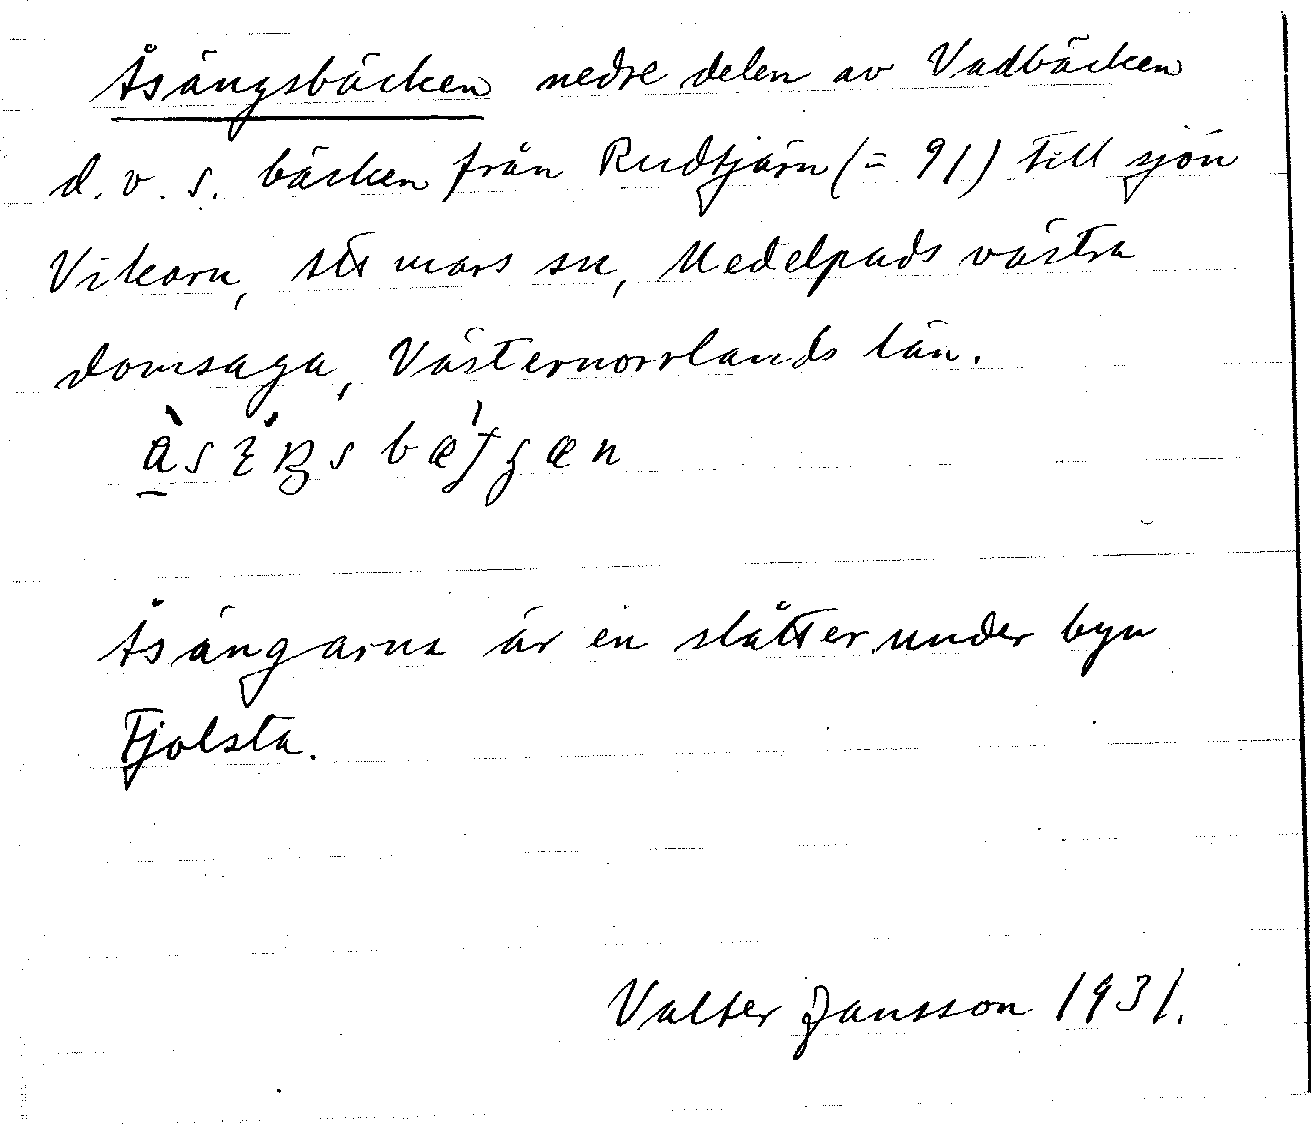 Åsängsbäcken nedre delen av Vadbäcken
d. v. s. bäcken från Rudtjärn (= 91) till sjön
Vikarn, Attmars sn, Medelpads västra
domsaga, Västernorrlands län.
Åsängarna är en slåtter under byn
Fjolsta.
Valter Jansson 1931.